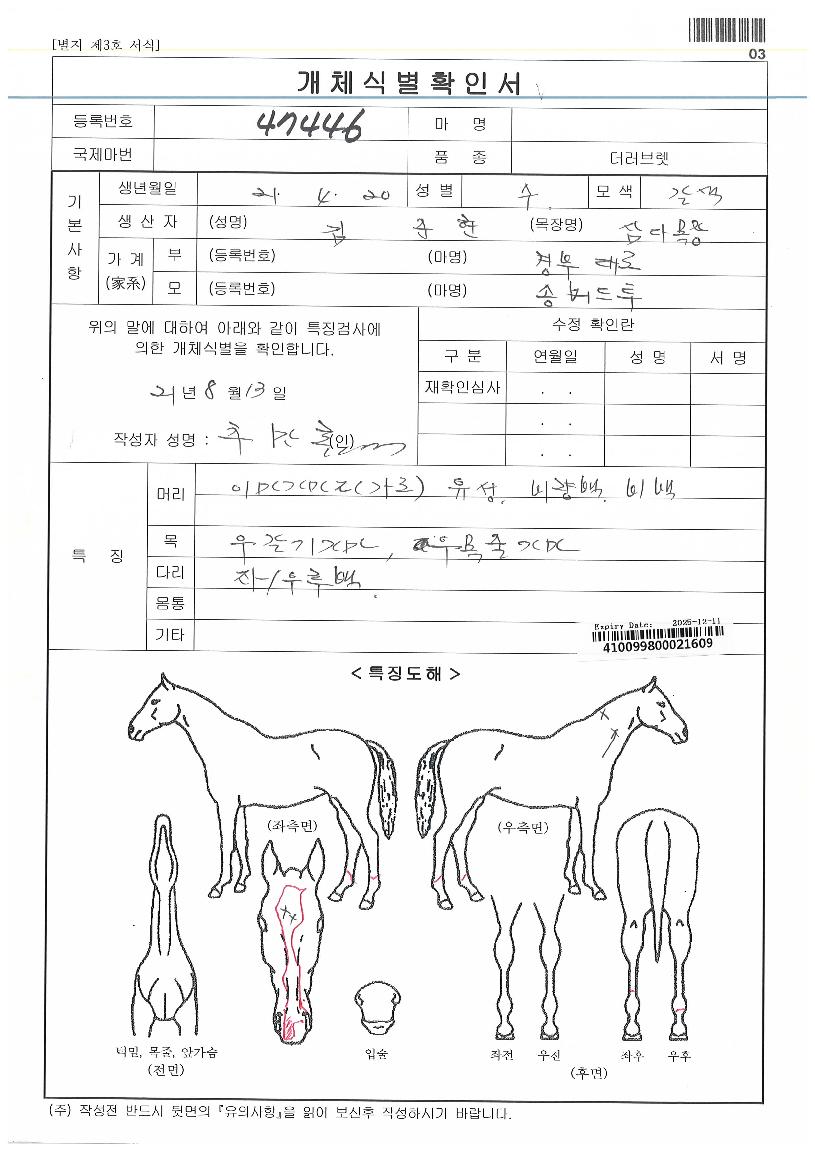 [별지 제3호 서식]
03
개체식별확인서
등록번호 47446 마 명
국제마번 품 종 더러브렛
기본사항
생년월일 21. 4. 20 성 별 수 모 색 갈색
생 산 자 (성명) 김 준 현 (목장명) 삼다목장
가 계 (家系) 부 (등록번호) (마명) 경부대로
모 (등록번호) (마명) 송버드투
위의 말에 대하여 아래와 같이 특징검사에
의한 개체식별을 확인합니다.
21년 8월 13일
작성자 성명 : (인)
수정 확인란
구 분 연월일 성 명 서 명
재확인심사 . .
. .
. .
특 징
머리 유성. 비량백. 비백
목
다리 좌/우후백.
몸통
기타
Expiry Date: 2025-12-11
410099800021609
< 특징도해 >
(좌측면) (우측면)
턱밑, 목줄, 앞가슴
(전면)
입술
좌전 우전 좌후 우후
(후면)
(주) 작성전 반드시 뒷면의 『유의사항』을 읽어 보신후 작성하시기 바랍니다.